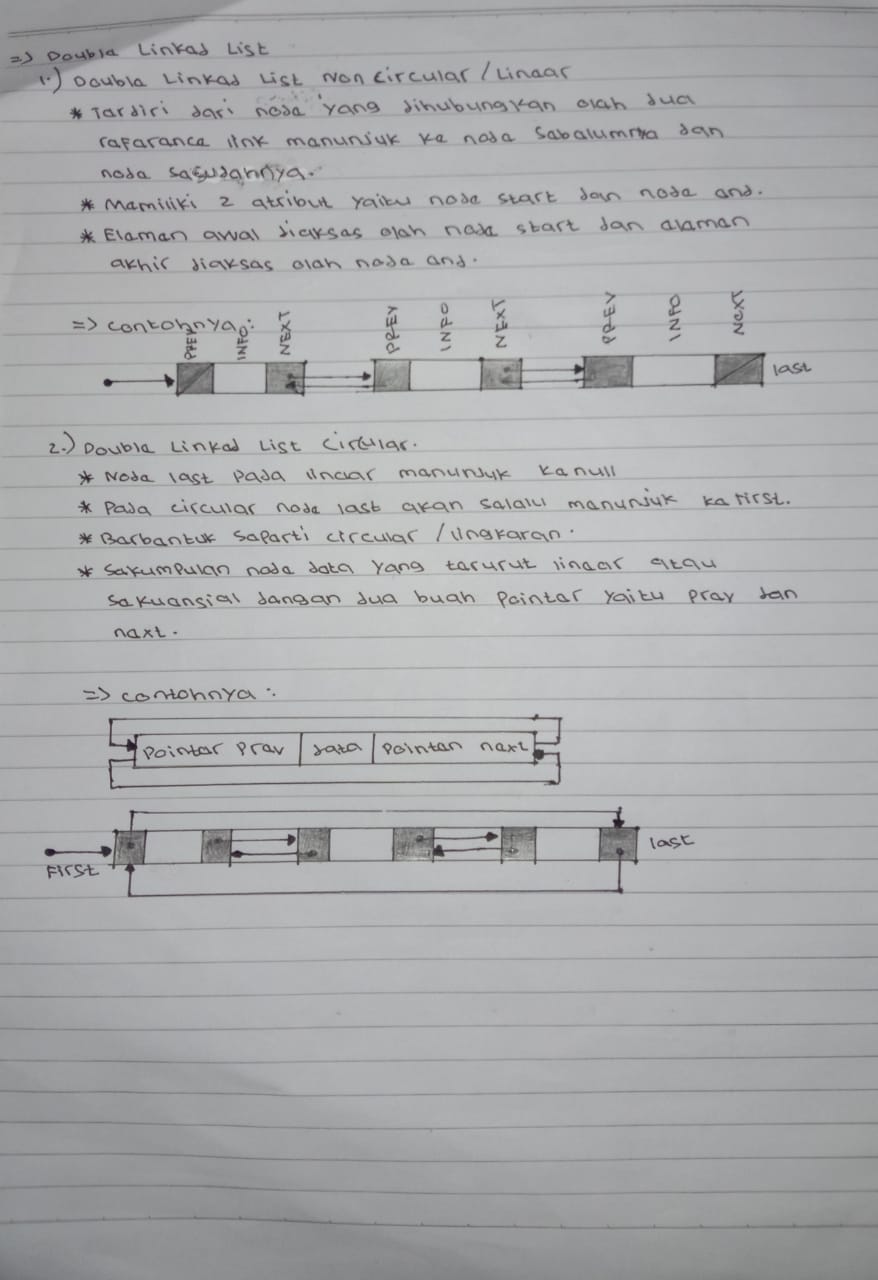 => Double Linked List
1.) Double Linked List Non Circular / Linear
* Terdiri dari node yang dihubungkan oleh dua
reference link menunjuk ke node sebelumnya dan
node sesudahnya.
* Memiliki 2 atribut yaitu node start dan node end.
* Elemen awal diakses oleh node start dan elemen
akhir diakses oleh node end.
=> contohnya :
PREV INFO NEXT PREV INFO NEXT PREV INFO NEXT
last
2.) Double Linked List Circular.
* Node last pada linear menunjuk ke null
* Pada circular node last akan selalu menunjuk ke first.
* Berbentuk seperti circular / lingkaran.
* Sekumpulan node data yang terurut linear atau
sekuensial dengan dua buah pointer yaitu prev dan
next.
=> contohnya :
Pointer Prev data Pointer next
First last